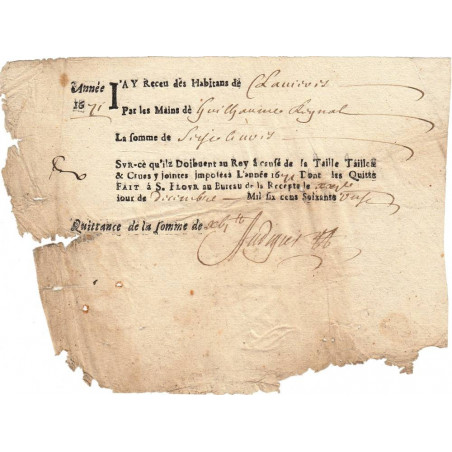 Année I'AY Receu des Habitans de
1671 Par les Mains de Guilhaumes Reynal
La somme de
Svr-ce qu'ils Doibuent au Roy à cause de la Taille Taillon
& Crues y jointes imposées L'année 1671 Dont les Quitte
FAIT A S. FLOVR AU Bureau de la Recepte le
iour de Decembre Mil six cens Soixante unse
Quittance de la somme de